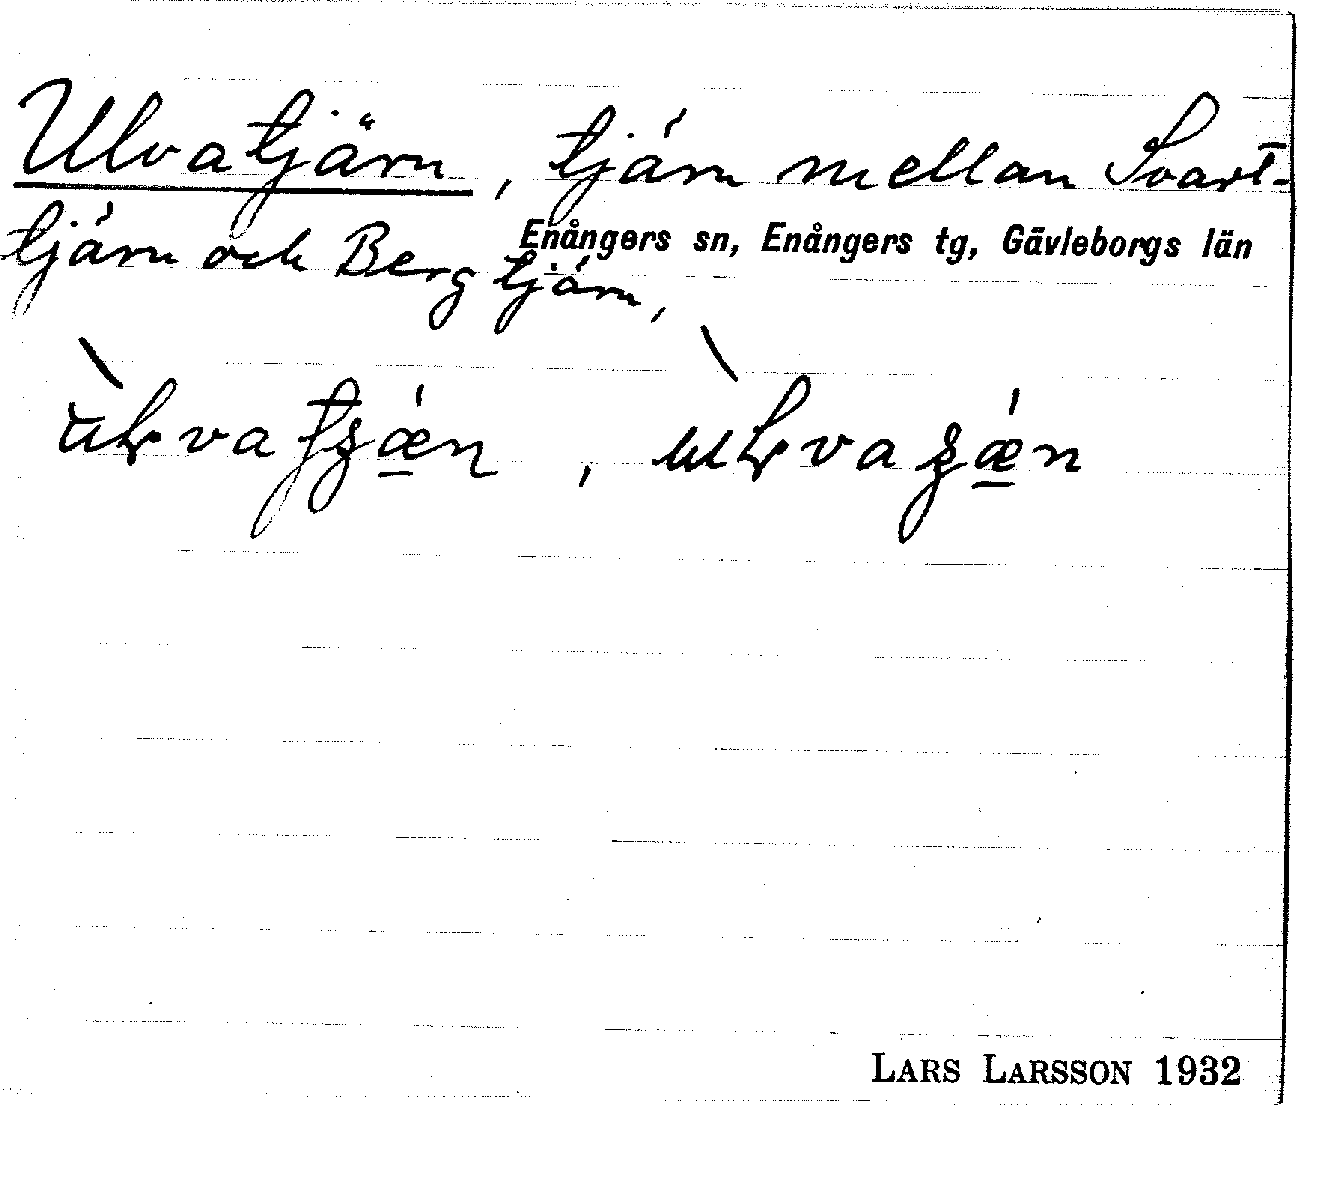 Ulvatjärn, tjärn mellan Svart-
tjärn och Bergtjärn,
Enångers sn, Enångers tg, Gävleborgs län
LARS LARSSON 1932